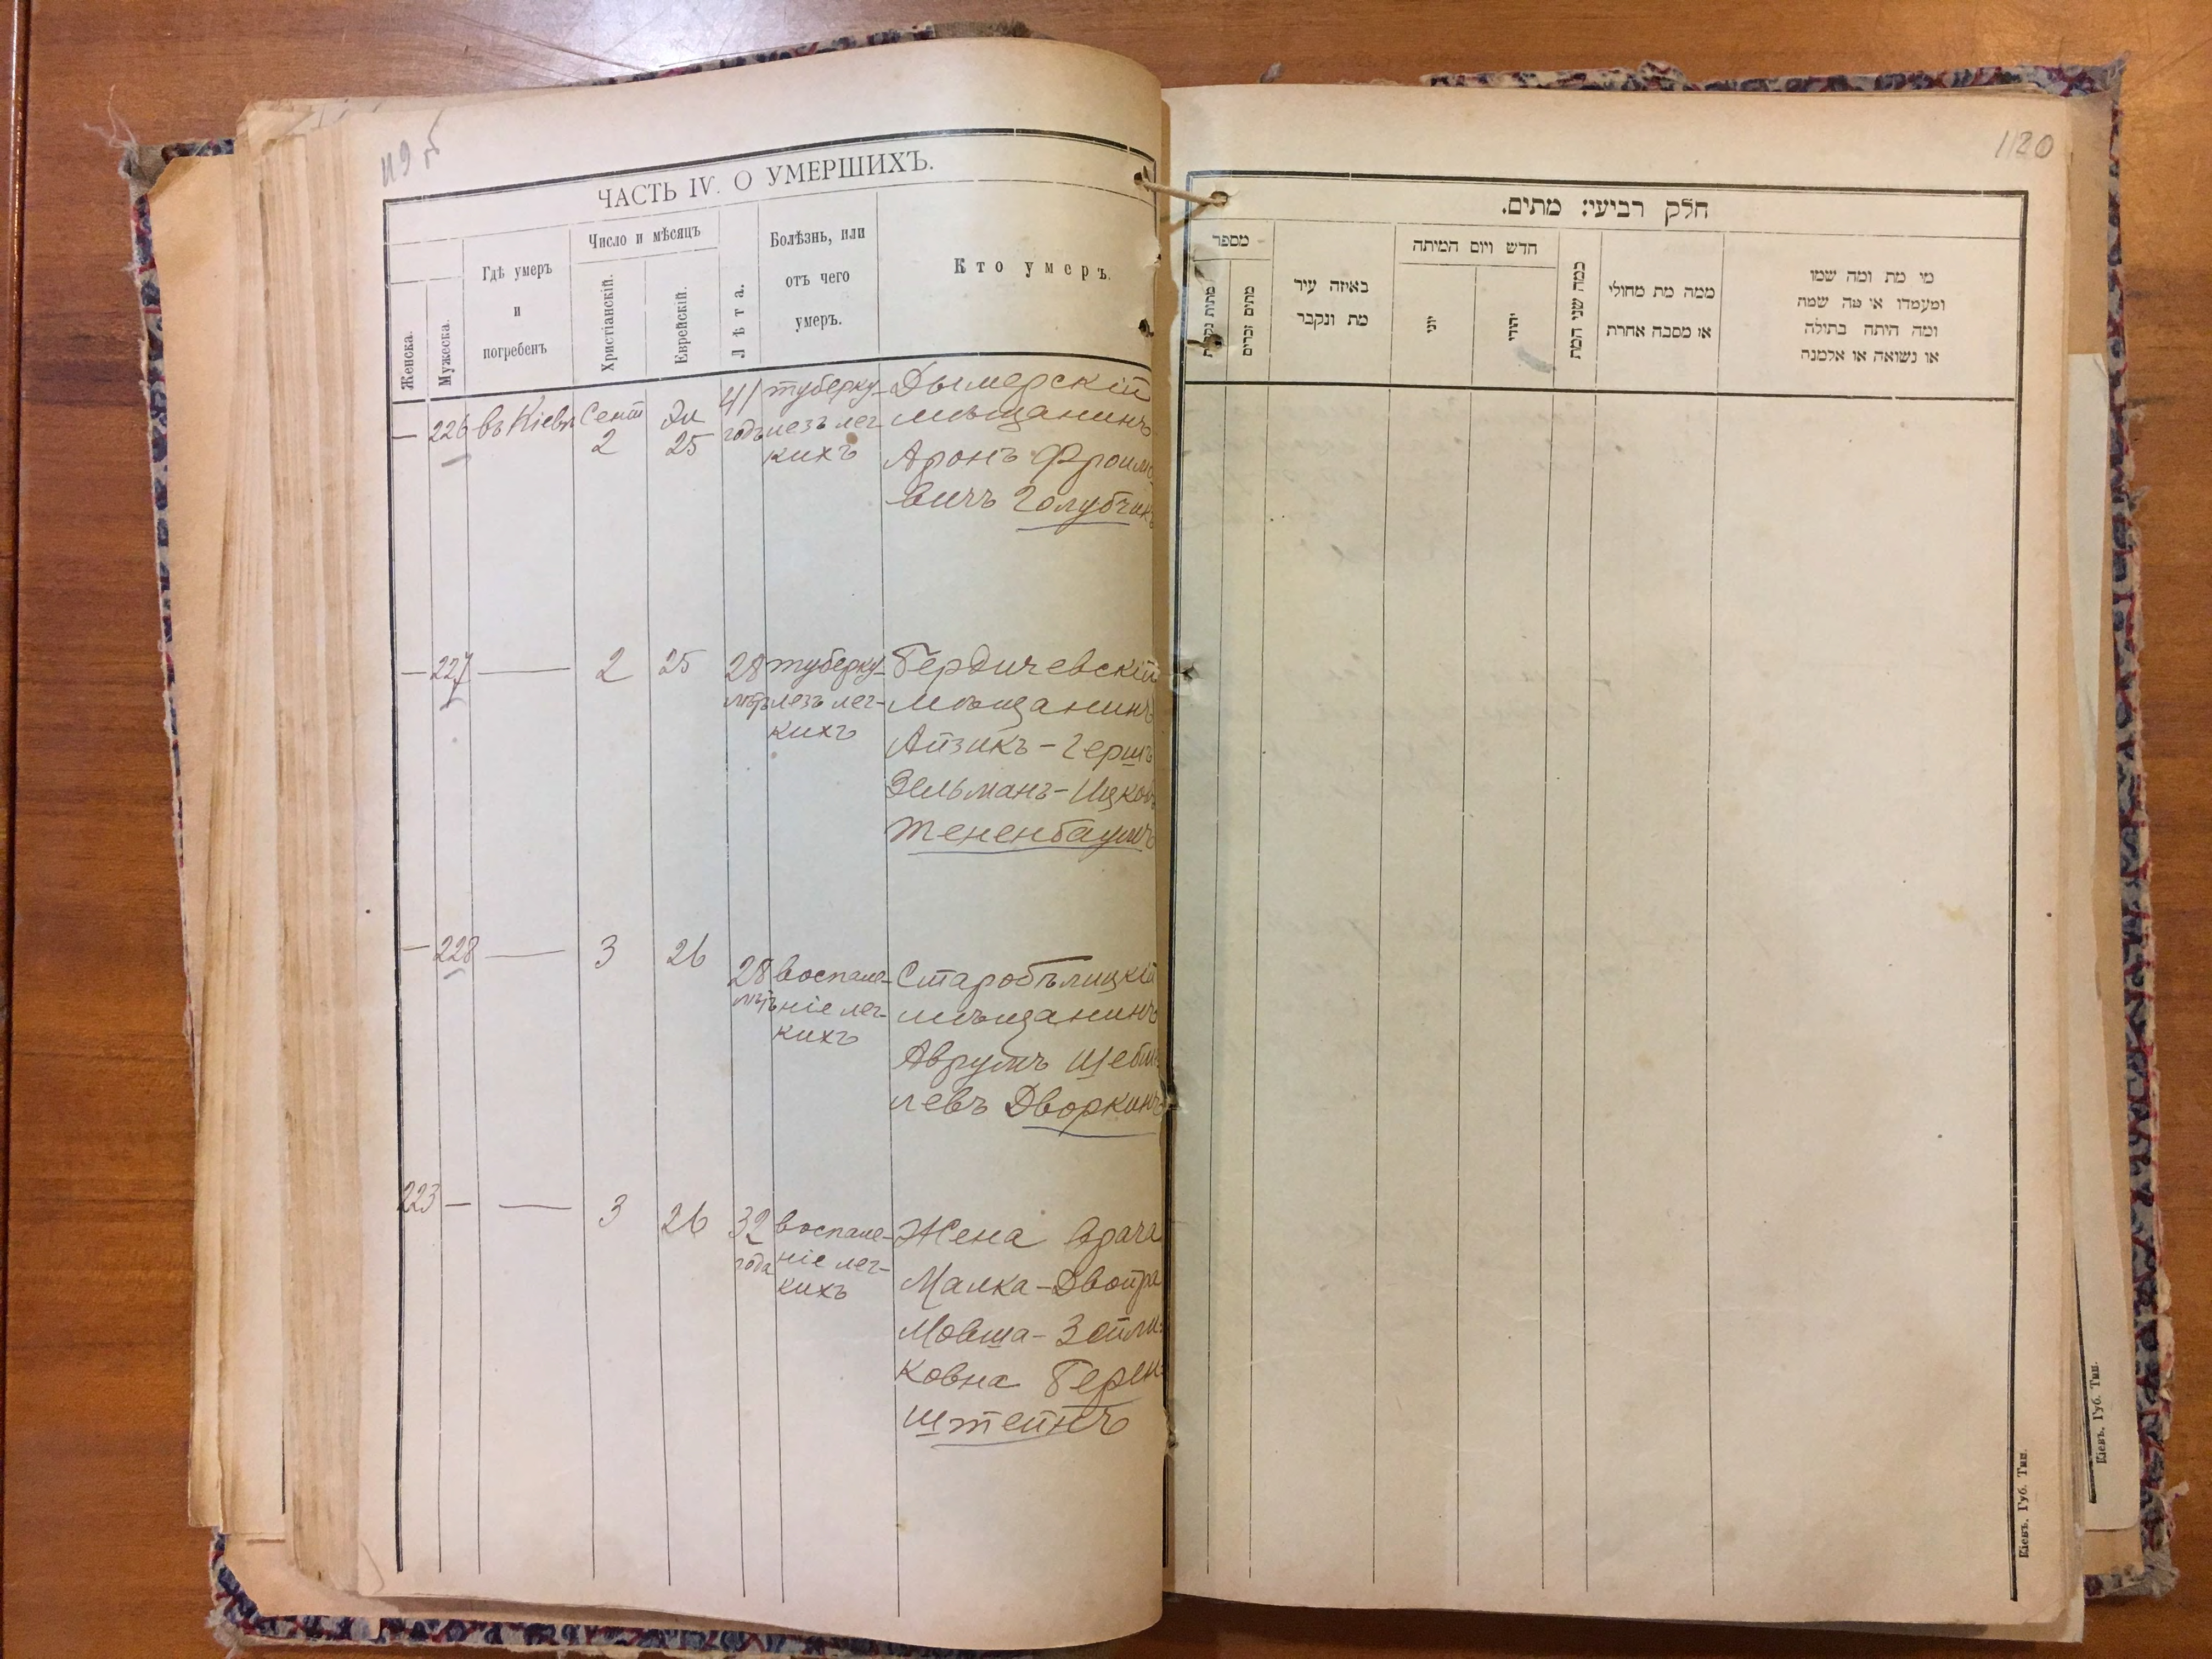 119 об
ЧАСТЬ IV. О УМЕРШИХЪ.
Женска.
Мужеска.
Гдѣ умеръ
и
погребенъ
Число и мѣсяцъ
Христіанскій.
Еврейскій.
Лѣта.
Болѣзнь, или
отъ чего
умеръ.
Кто умеръ.
— 226 въ Кіевѣ Сент 2 Эл 25 41 годъ
туберку-
лезъ лег-
кихъ
Дымерскій
мѣщанинъ
Аронъ Фроимо
вичъ Голубчикъ
— 227 — 2 25 28 лѣтъ
туберку-
лезъ лег-
кихъ
Бердичевскій
мѣщанинъ
Айзикъ-Гершъ
Зельманъ-Ицков
Тененбаумъ
— 228 — 3 26 28 лѣтъ
воспале-
ніе лег-
кихъ
Старобѣлицкій
мѣщанинъ
Аврумъ
левъ Дворкинъ
223 — — 3 26 32 года
воспале-
ніе лег-
кихъ
Жена врача
Малка-Двойра
Мовша-Зейли-
ковна Берен-
штейнъ
1120
חלק רביעי: מתים.
מספר
מתות נקבות
מתים זכרים
באיזה עיר
מת ונקבר
חדש ויום המיתה
יוני
יהודי
כמה שני המת
ממה מת מחולי
או מסבה אחרת
מי מת ומה שמו
ומעמדו או מה שמה
ומה היתה בתולה
או נשואה או אלמנה
Кіевъ, Губ. Тип.
Кіевъ, Губ. Тип.